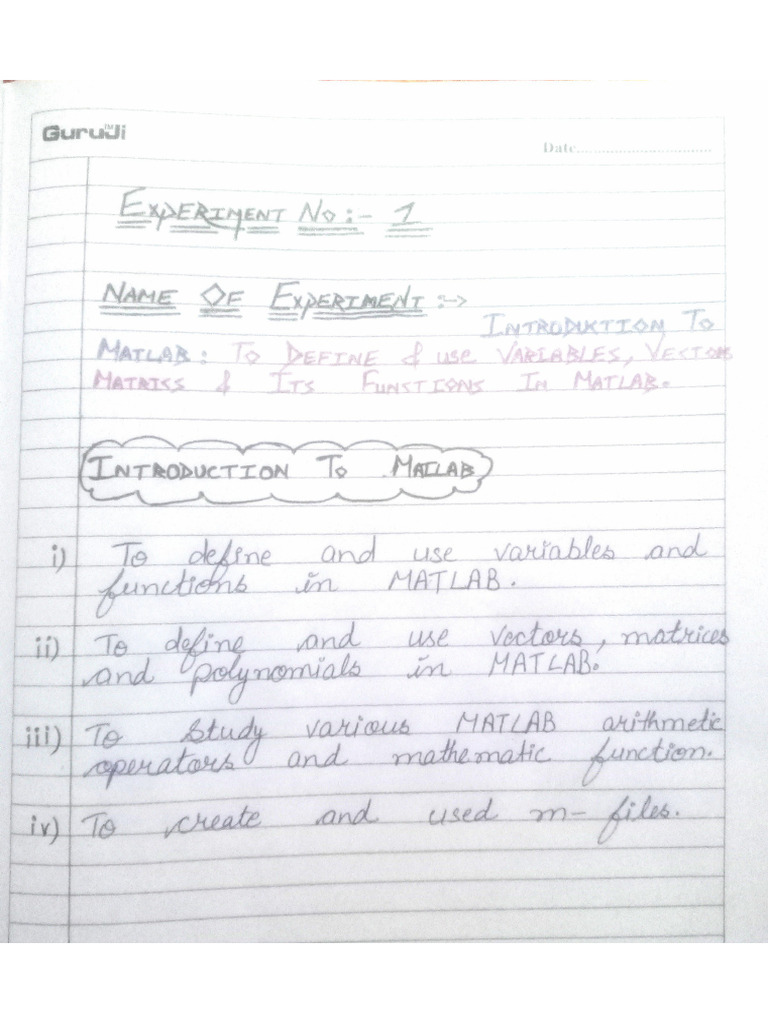 GuruJi™
Date
EXPERIMENT NO:- 1
NAME OF EXPERIMENT:->
INTRODUKTION TO
MATLAB: TO DEFINE & USE VARIABLES, VECTOR
MATRISS & ITS FUNSTIONS IN MATLAB.
INTRODUCTION TO MATLAB
i) To define and use variables and
functions in MATLAB.
ii) To define and use vectors, matrices
and polynomials in MATLAB.
iii) To study various MATLAB arithmetic
operators and mathematic function.
iv) To create and used m- files.